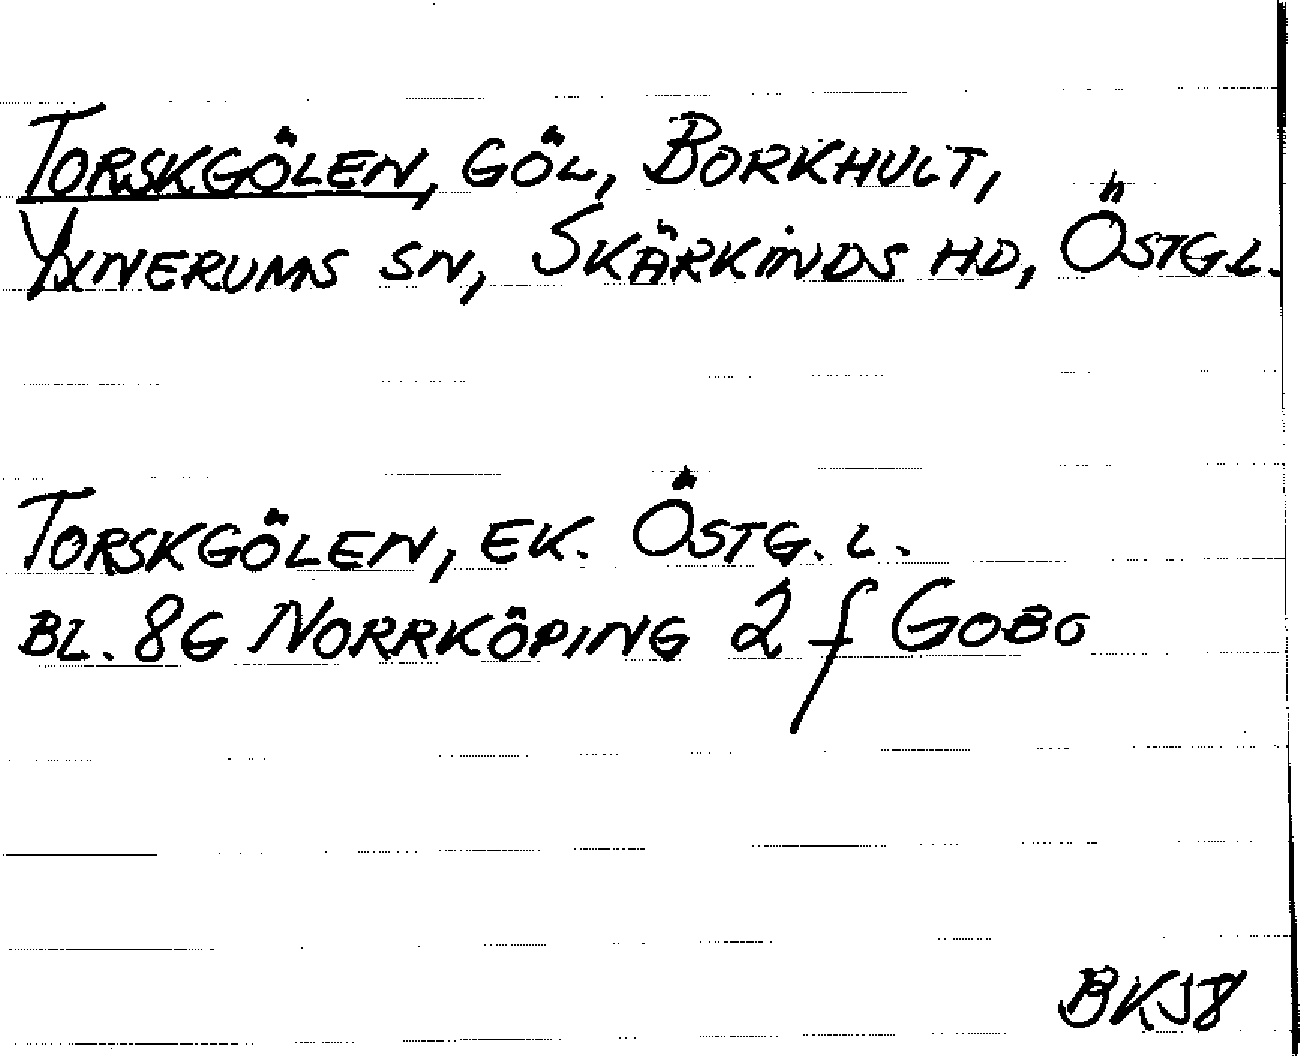 TORSKGÖLEN, GÖL, BORKHULT,
YXNERUMS SN, SKÄRKINDS HD, ÖSTG.L.
TORSKGÖLEN, EK. ÖSTG. L.
BL. 8G NORRKÖPING 2 f GOBO